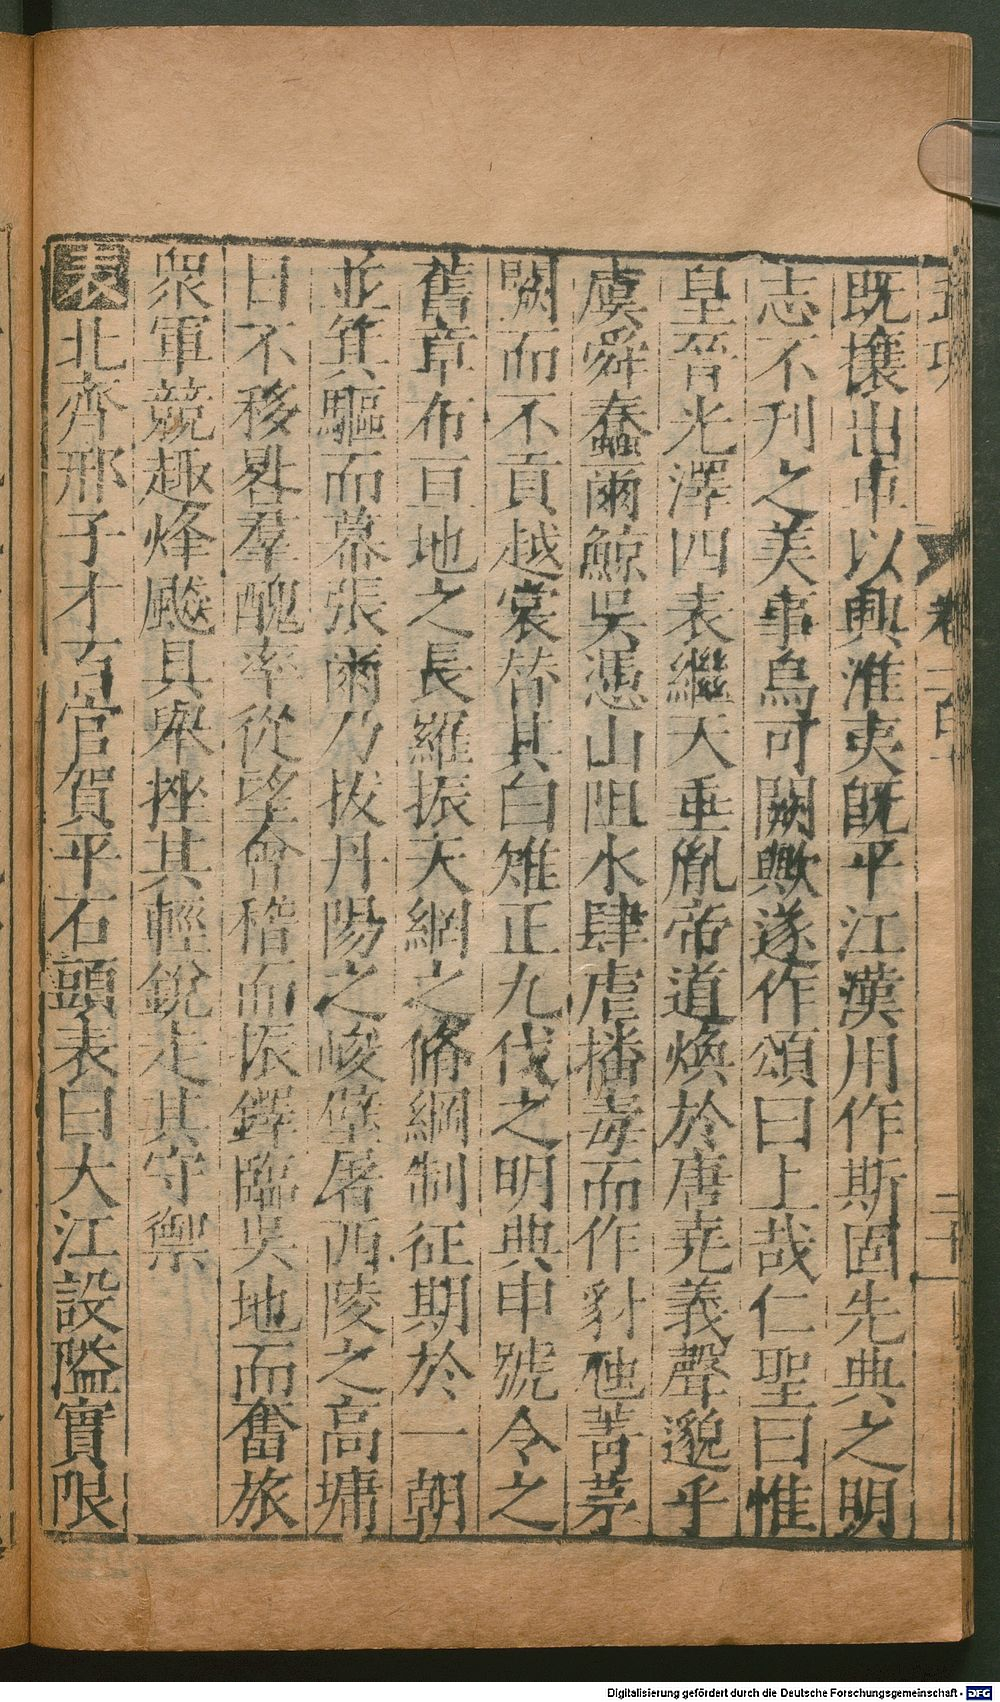 既攘出車以興淮夷既平江漢用作斯固先典之明
志不刊之美事烏可闕歟遂作頌曰上哉仁聖曰惟
皇晉光澤四表繼天垂胤帝道煥於唐堯義聲邈乎
虞舜蠢爾鯨吳憑山阻水肆虐播毒而作豺虺菁茅
闕而不貢越裳替其白雉正九伐之明典申號令之
舊章布亘地之長羅振天網之脩綱制征期於一朝
並箕驅而慕張爾乃拔丹陽之峻壁屠西陵之高墉
日不移晷羣醜率從望會稽而振鐸臨吳地而奮旅
衆軍競趣烽飈具舉挫其輕銳走其守禦
表北齊邢子才百官賀平石頭表曰大江設隘實限
Digitalisierung gefördert durch die Deutsche Forschungsgemeinschaft - DFG